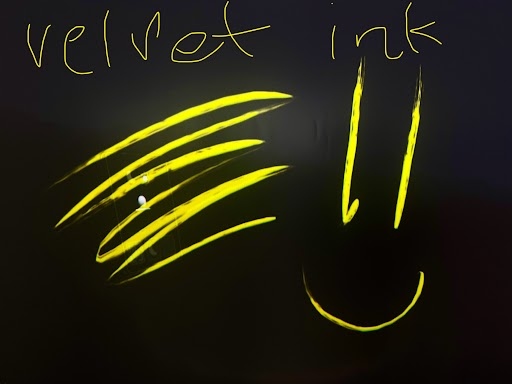 velvet ink